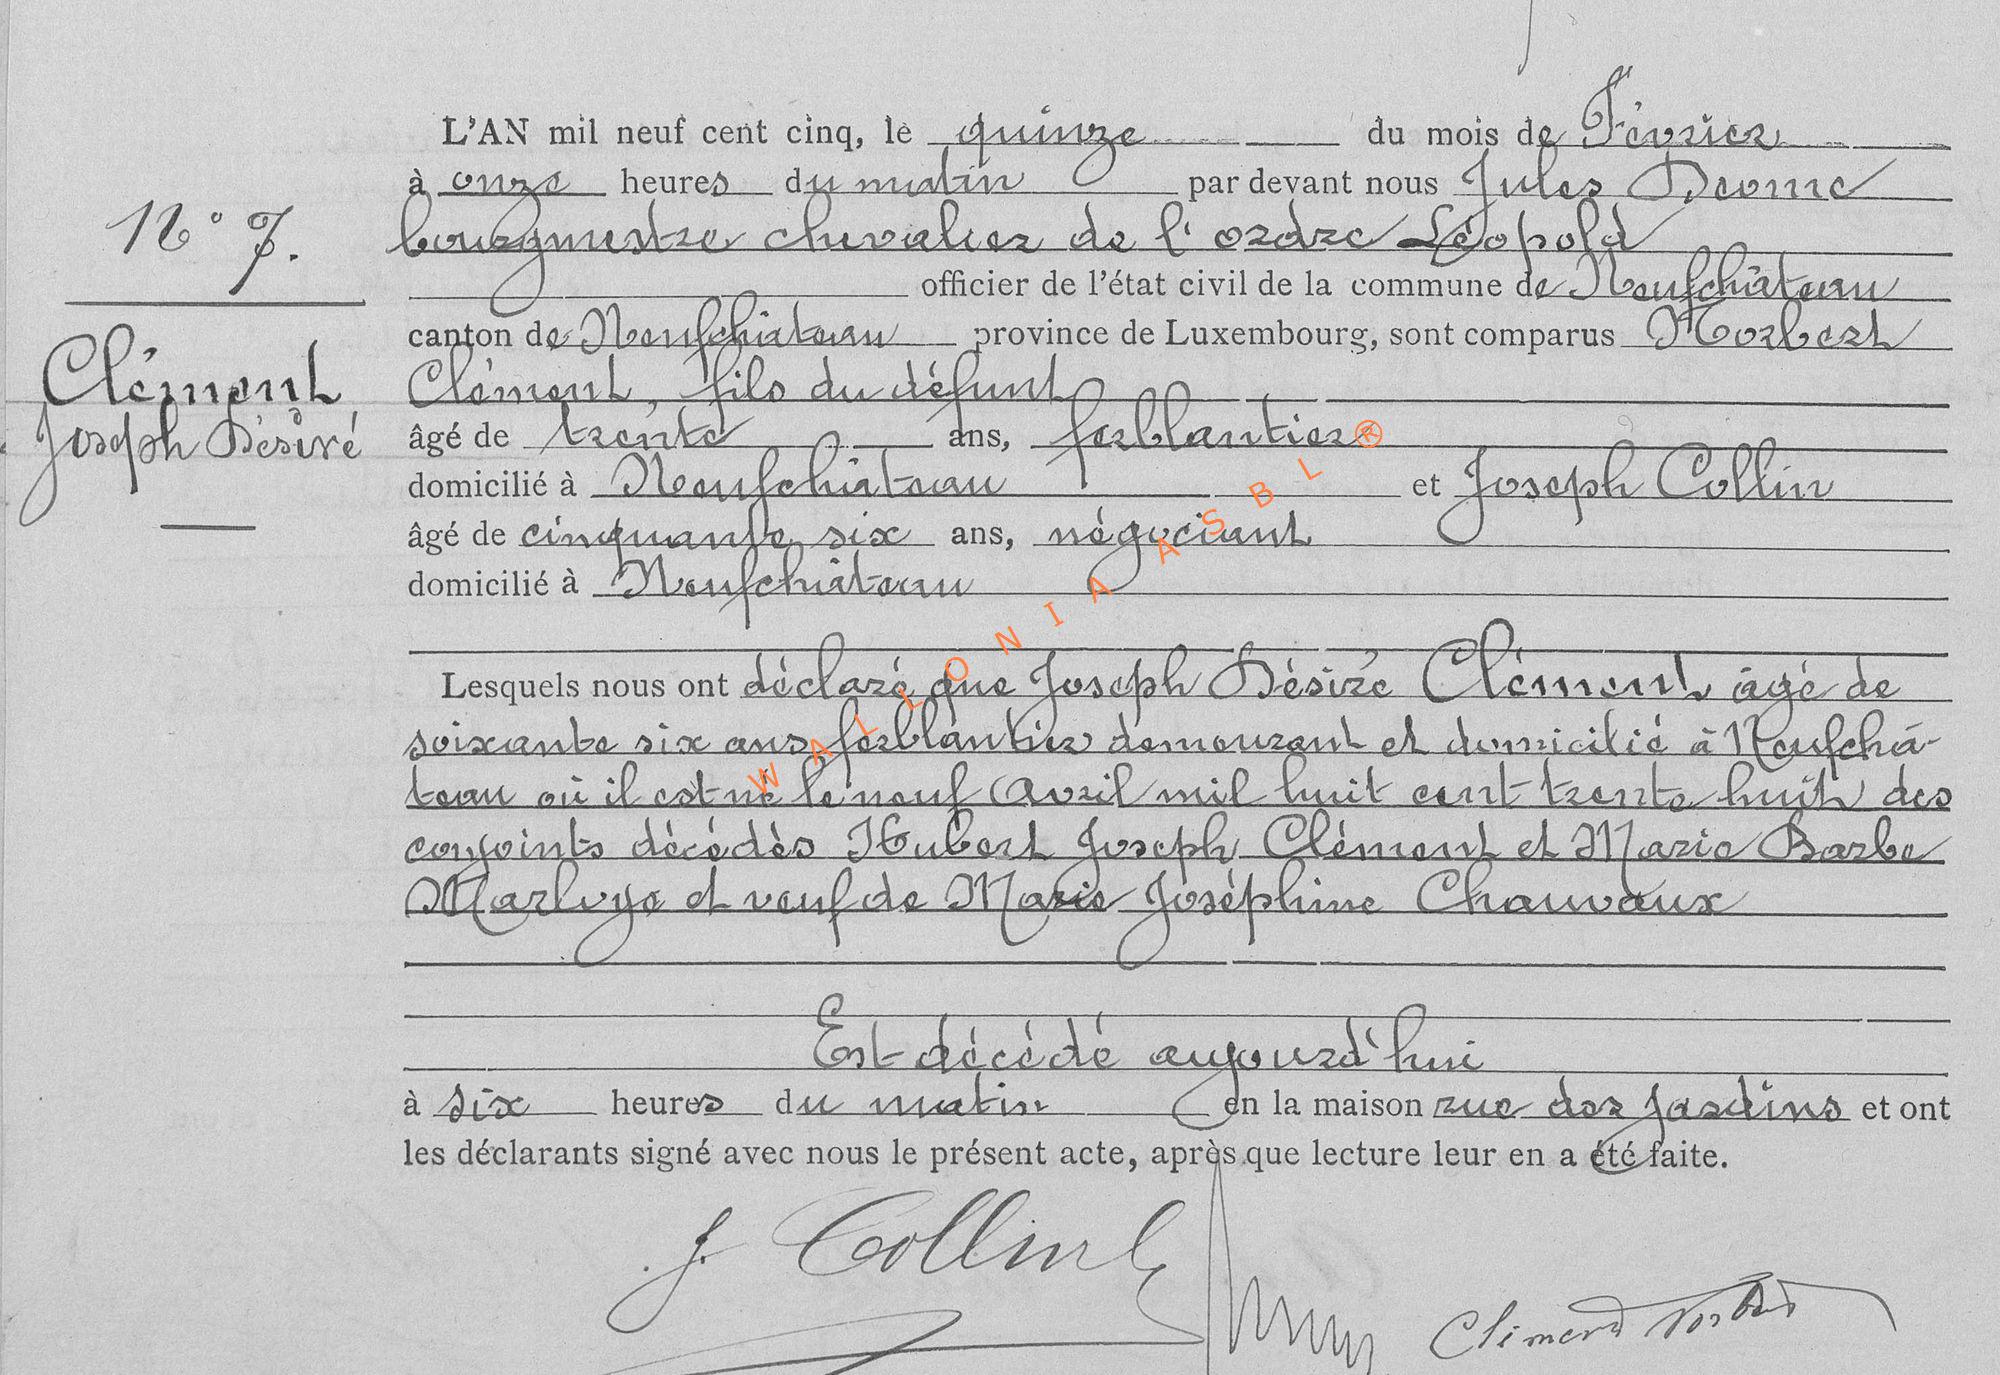 L'AN mil neuf cent cinq, le quinze du mois de Février
à onze heures du matin par devant nous Jules
N° 7.
bourgmestre chevalier de l'ordre Léopold
officier de l'état civil de la commune de Neufchâteau
canton de Neufchâteau province de Luxembourg, sont comparus Norbert
Clément
Joseph Désiré
Clément, fils du défunt
âgé de trente ans, ferblantier
domicilié à Neufchâteau et Joseph Collin
âgé de cinquante six ans, négociant
domicilié à Neufchâteau
Lesquels nous ont déclaré que Joseph Désiré Clément âgé de
soixante six ans ferblantier demeurant et domicilié à Neufchâ-
teau où il est né le neuf Avril mil huit cent trente huit des
conjoints décédés Hubert Joseph Clément et Marie Barbe
Marloye et veuf de Marie Joséphine Chauvaux
Est décédé aujourd'hui
à six heures du matin en la maison rue des Jardins et ont
les déclarants signé avec nous le présent acte, après que lecture leur en a été faite.
J. Collin
Clément Norbert
WALLONIA ASBL ®